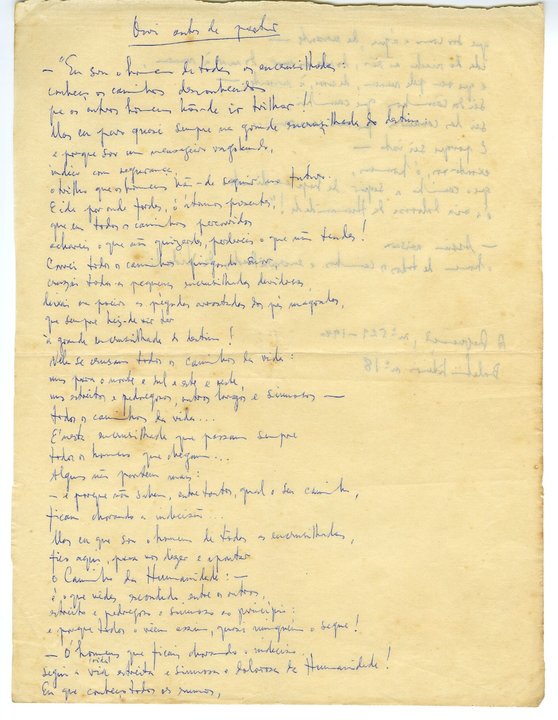 Ouvi antes de partir
— "Eu sou o homem de todas as encruzilhadas:
conheço os caminhos desconhecidos
que os outros homens hão-de ir trilhar!
Mas eu paro quase sempre na grande encruzilhada do destino
e porque sou um mensageiro vagabundo,
indico com segurança,
o trilho que os homens hão-de seguir no futuro.
E ide por onde fordes, ó
que em todos os caminhos percorridos
achareis o que não quizerdes, perdereis o que não tendes!
Correi todos os caminhos
cruzai todas as pequenas encruzilhadas
deixai na poeira as pègadas dos pés magoados,
que sempre heis-de vir ter
à grande encruzilhada do destino!
Nela se cruzam todos os caminhos da vida:
uns para o norte e sul e este e oeste,
uns estreitos e pedregosos, outros largos e sinuosos —
todos os caminhos da vida...
E nesta encruzilhada que passam sempre
todos os homens que chegam...
Alguns não partem mais:
— e porque não sabem, entre tantos, qual o seu caminho,
ficam chorando a indecisão...
Mas eu que sou o homem de tôdas as encruzilhadas,
fico aqui, para vos dizer e apontar
o Caminho da Humanidade: —
é o que vêdes escondido entre os outros,
estreito e pedregoso e sinuoso ao princípio:
e porque todos o vêem assim, quási ninguem o segue!
— Ó homens que ficais chorando o indeciso
segui a (vida) via estreita e sinuosa e dolorosa da Humanidade!
Eu que conheço todos os rumos,